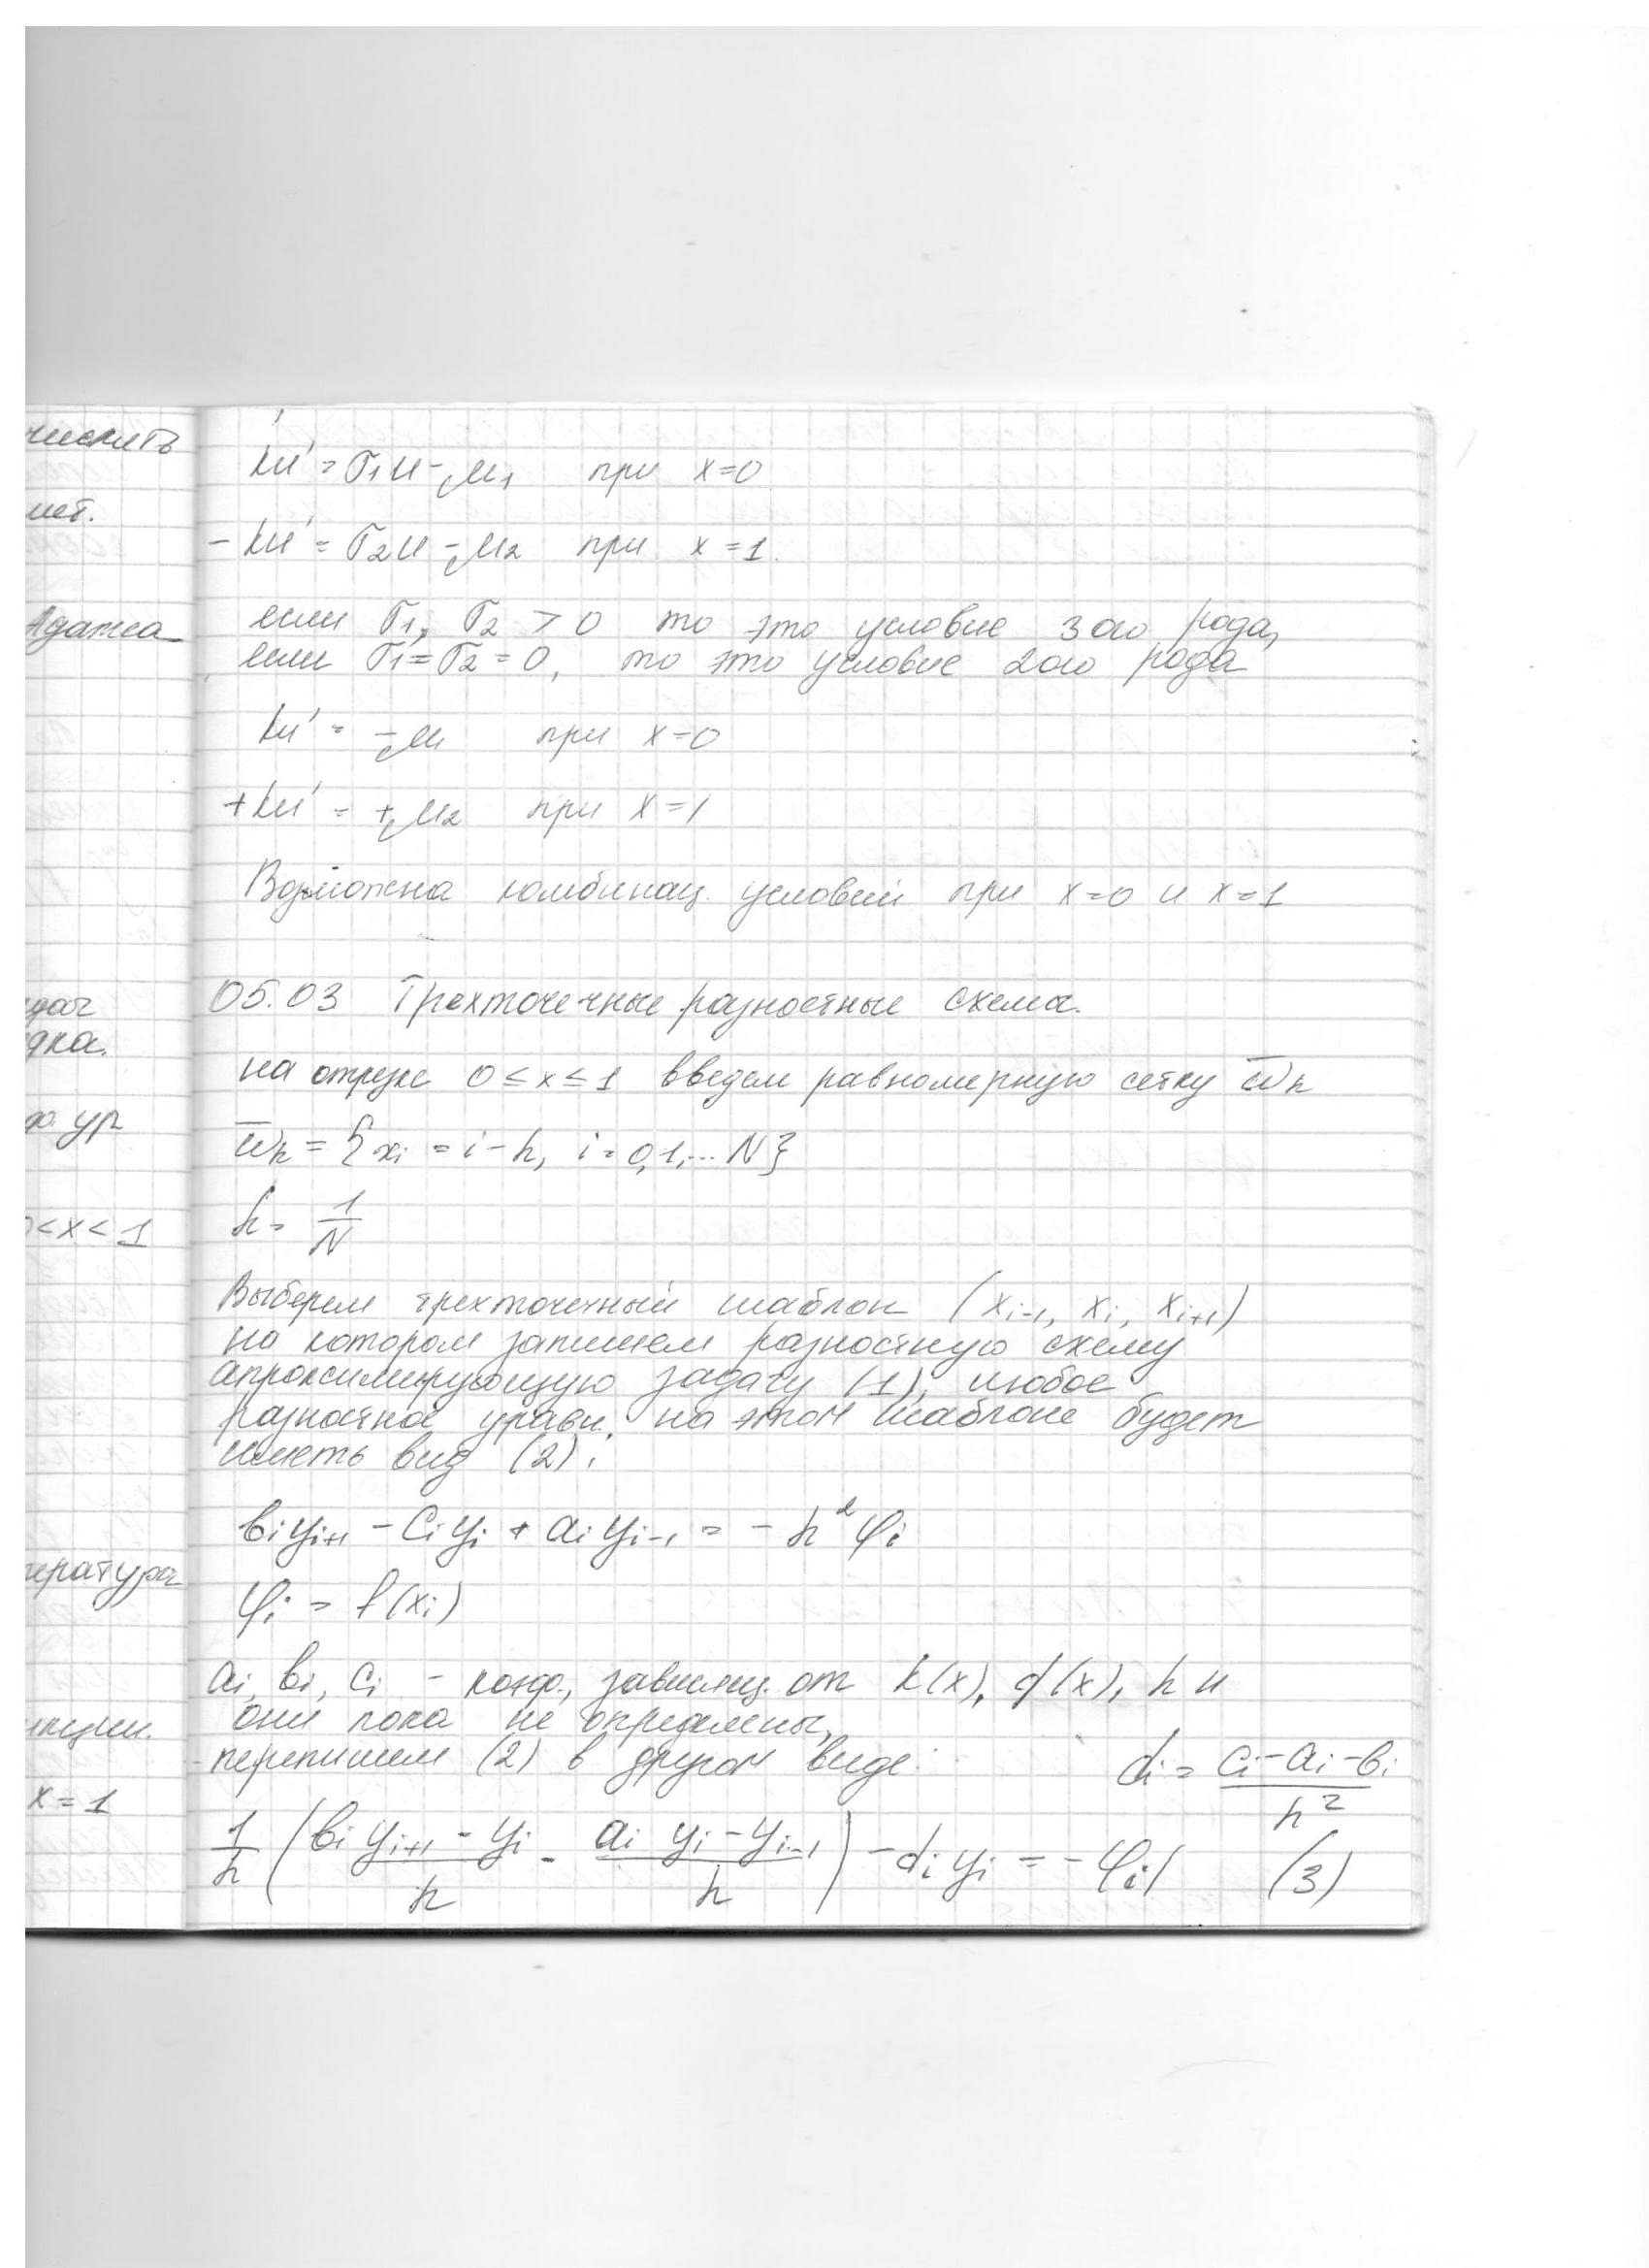 числить
мет.
Адамса
дач
дка.
ф. ур
0<x<1
пература
нкции.
x=1
ku' = σ₁u - μ₁ при x=0
- ku' = σ₂u - μ₂ при x=1.
если σ₁, σ₂ > 0 то это условие 3ого рода,
если σ₁=σ₂=0, то это условие 2ого рода
ku' = -μ₁ при x=0
+ku' = +μ₂ при x=1
Возможна комбинац. условий при x=0 и x=1
05.03 Трехточечные разностные схема.
на отрезке 0≤x≤1 введем равномерную сетку ω̅ₕ
ω̅ₕ = {xᵢ = i-h, i=0,1,... N}
h = 1/N
Выберем трехточечный шаблон (xᵢ₋₁, xᵢ, xᵢ₊₁)
на котором запишем разностную схему
апроксимирующую задачу (1), любое
разностное уравн. на этом шаблоне будет
иметь вид (2):
bᵢyᵢ₊₁ - cᵢyᵢ + aᵢyᵢ₋₁ = - h²φᵢ
φᵢ = f(xᵢ)
aᵢ, bᵢ, cᵢ - коэф., зависящ. от k(x), d(x), h и
они пока не определены,
перепишем (2) в другом виде: dᵢ = (cᵢ-aᵢ-bᵢ)/h²
1/h (bᵢ (yᵢ₊₁ - yᵢ)/h - aᵢ (yᵢ - yᵢ₋₁)/h) - dᵢyᵢ = -φᵢ/ (3)